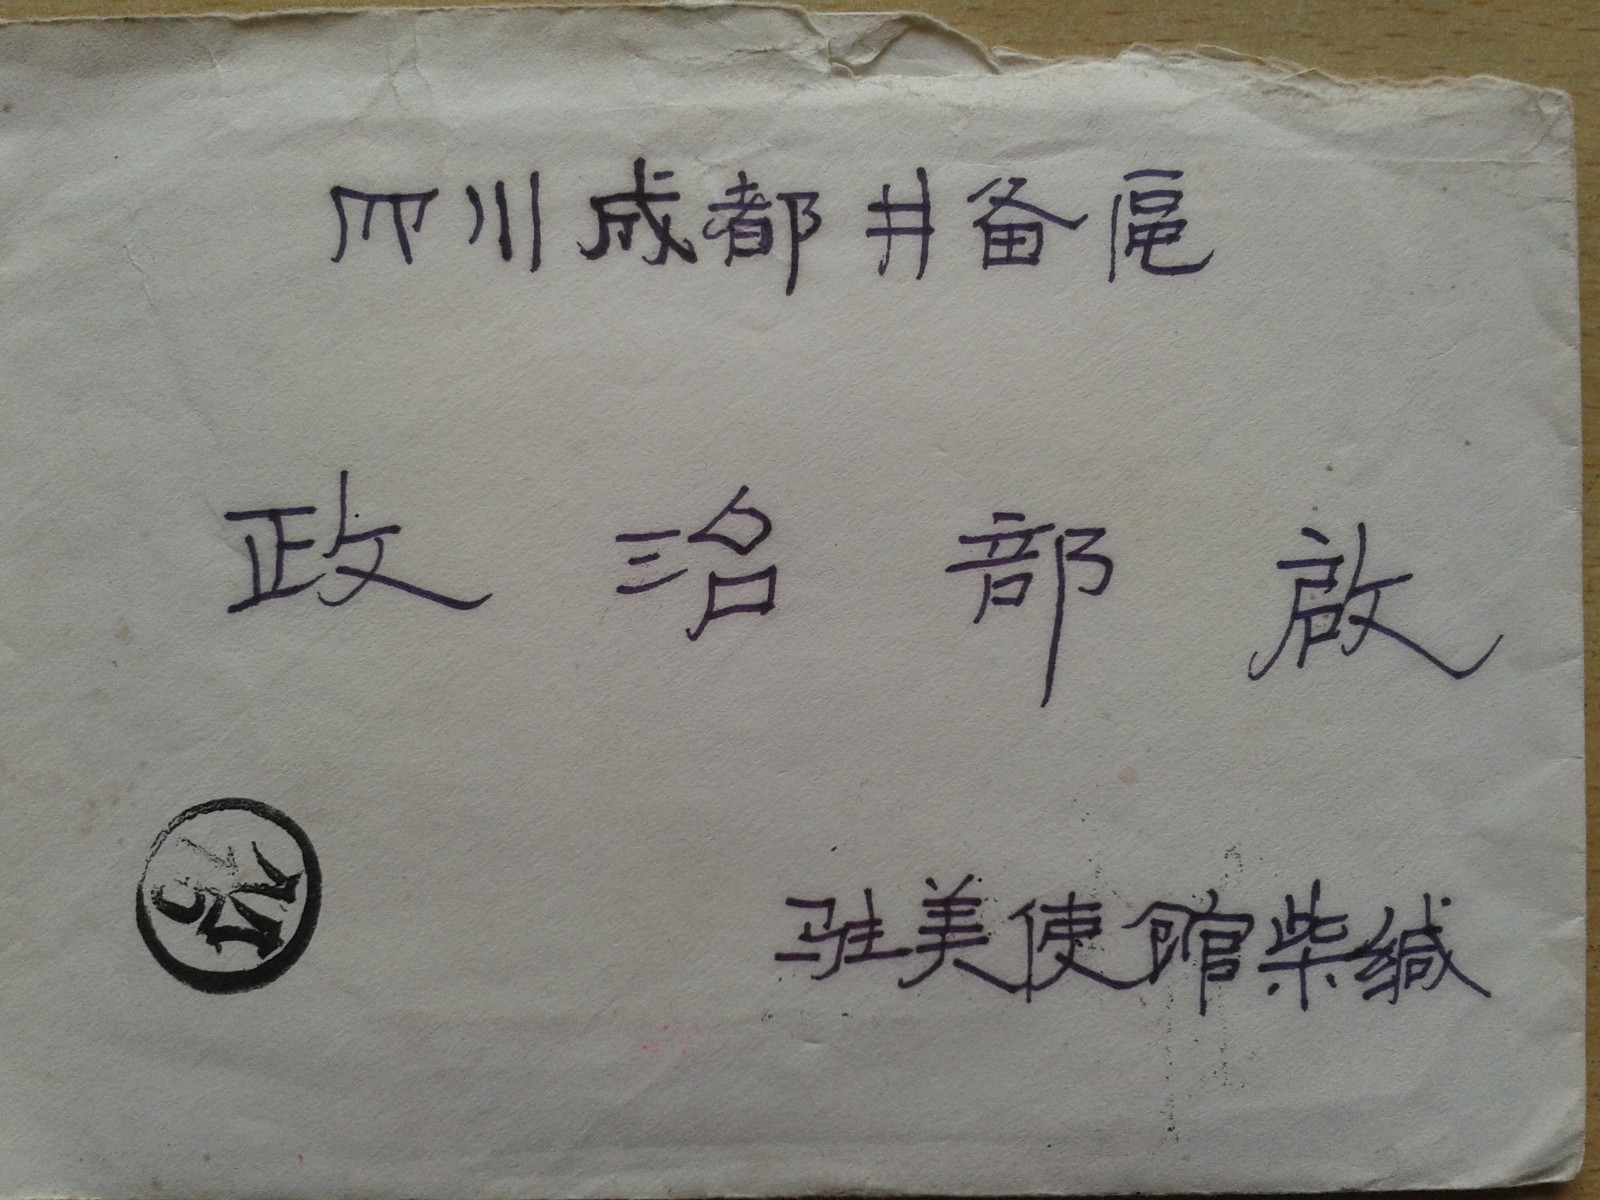 四川成都井备區
政治部啟
驻美使館柴缄